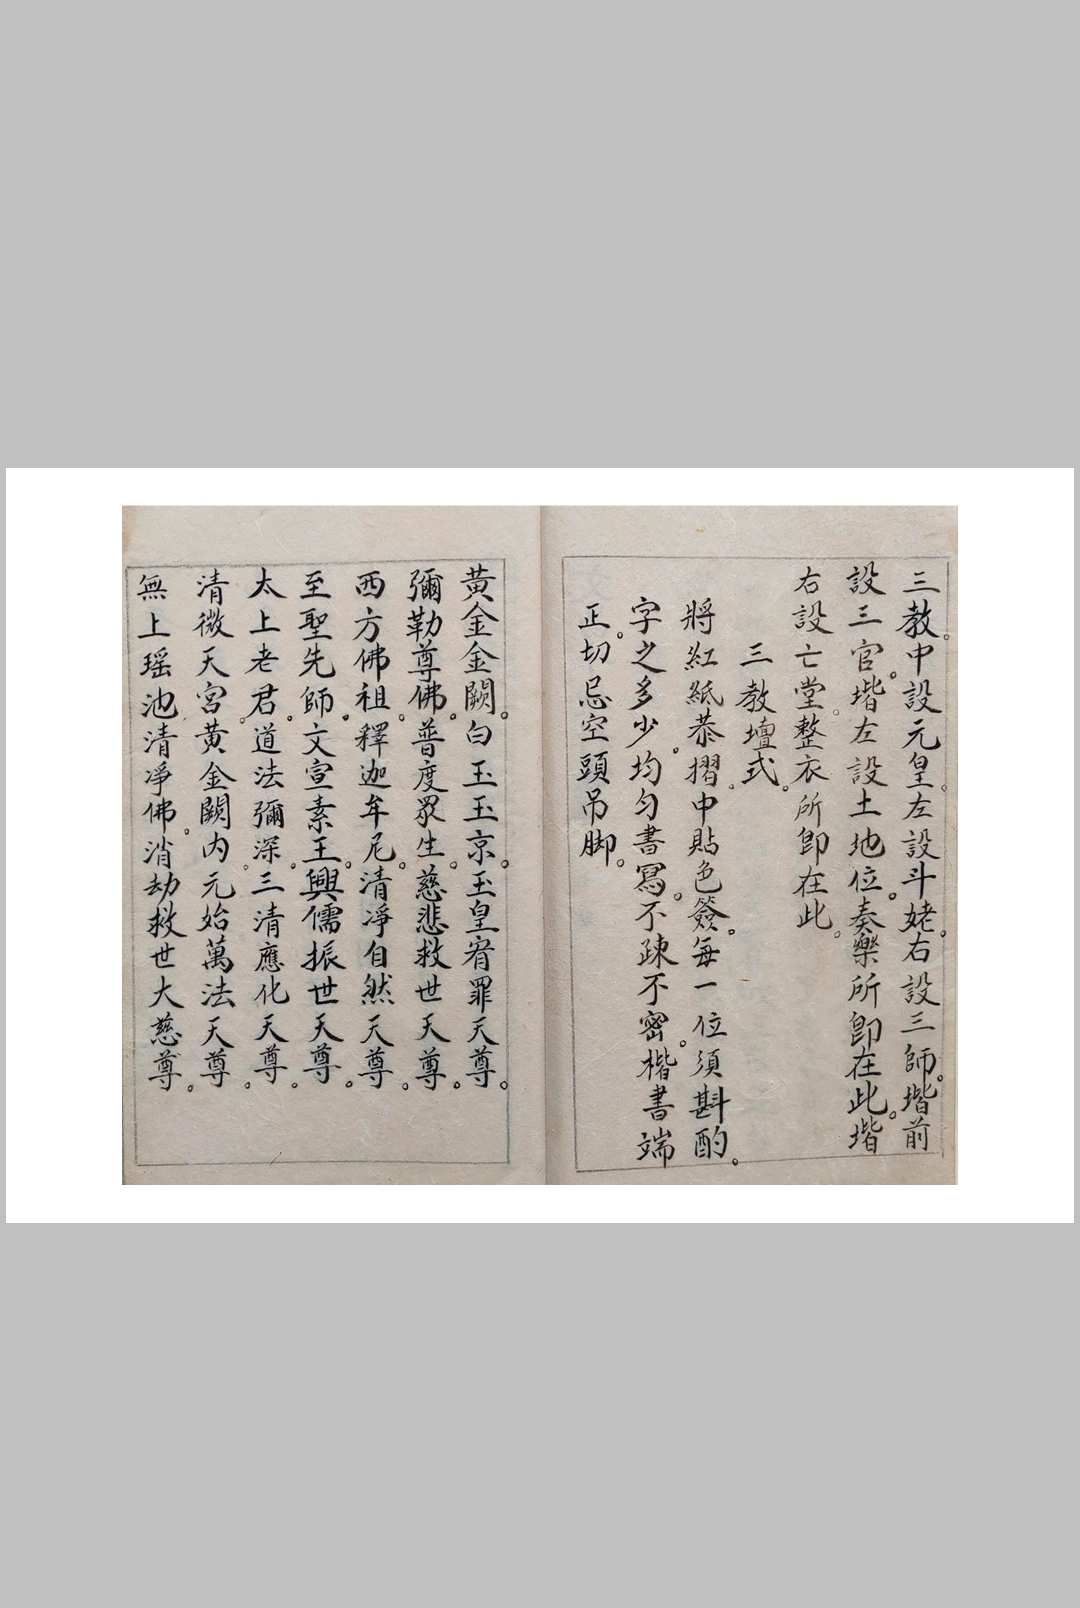 三教。中設元皇。左設斗姥。右設三師。堦前
設三官。堦左設土地位。奏樂所卽在此。堦
右設亡堂。整衣所卽在此。
三教壇式。
將紅紙恭摺。中貼色簽。每一位須斟酌。
字之多少。均勻書寫。不疎不密。楷書端
正。切忌空頭吊脚。
黃金金闕。白玉玉京。玉皇宥罪天尊。
彌勒尊佛。普度眾生。慈悲救世天尊。
西方佛祖。釋迦牟尼。清凈自然天尊。
至聖先師。文宣素王。興儒振世天尊。
太上老君。道法彌深。三清應化天尊。
清微天宮。黃金闕内。元始萬法天尊。
無上瑶池清凈佛。消劫救世大慈尊。